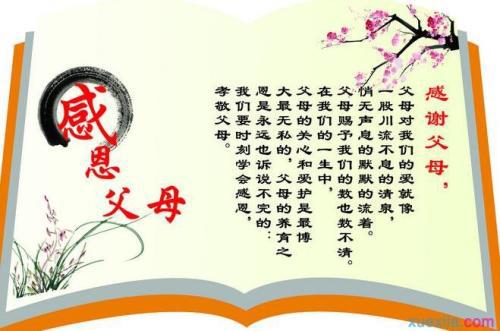 感恩父母
感谢父母，
父母对我们的爱就像
一股川流不息的清泉，
悄无声息的默默的流着。
父母赐予我们的数也数不清。
在我们的一生中，
父母的关心和爱护是最博
大最无私的，父母的养育之
恩是永远也诉说不完的：
我们要时刻学会感恩，
孝敬父母。
xuexila.com